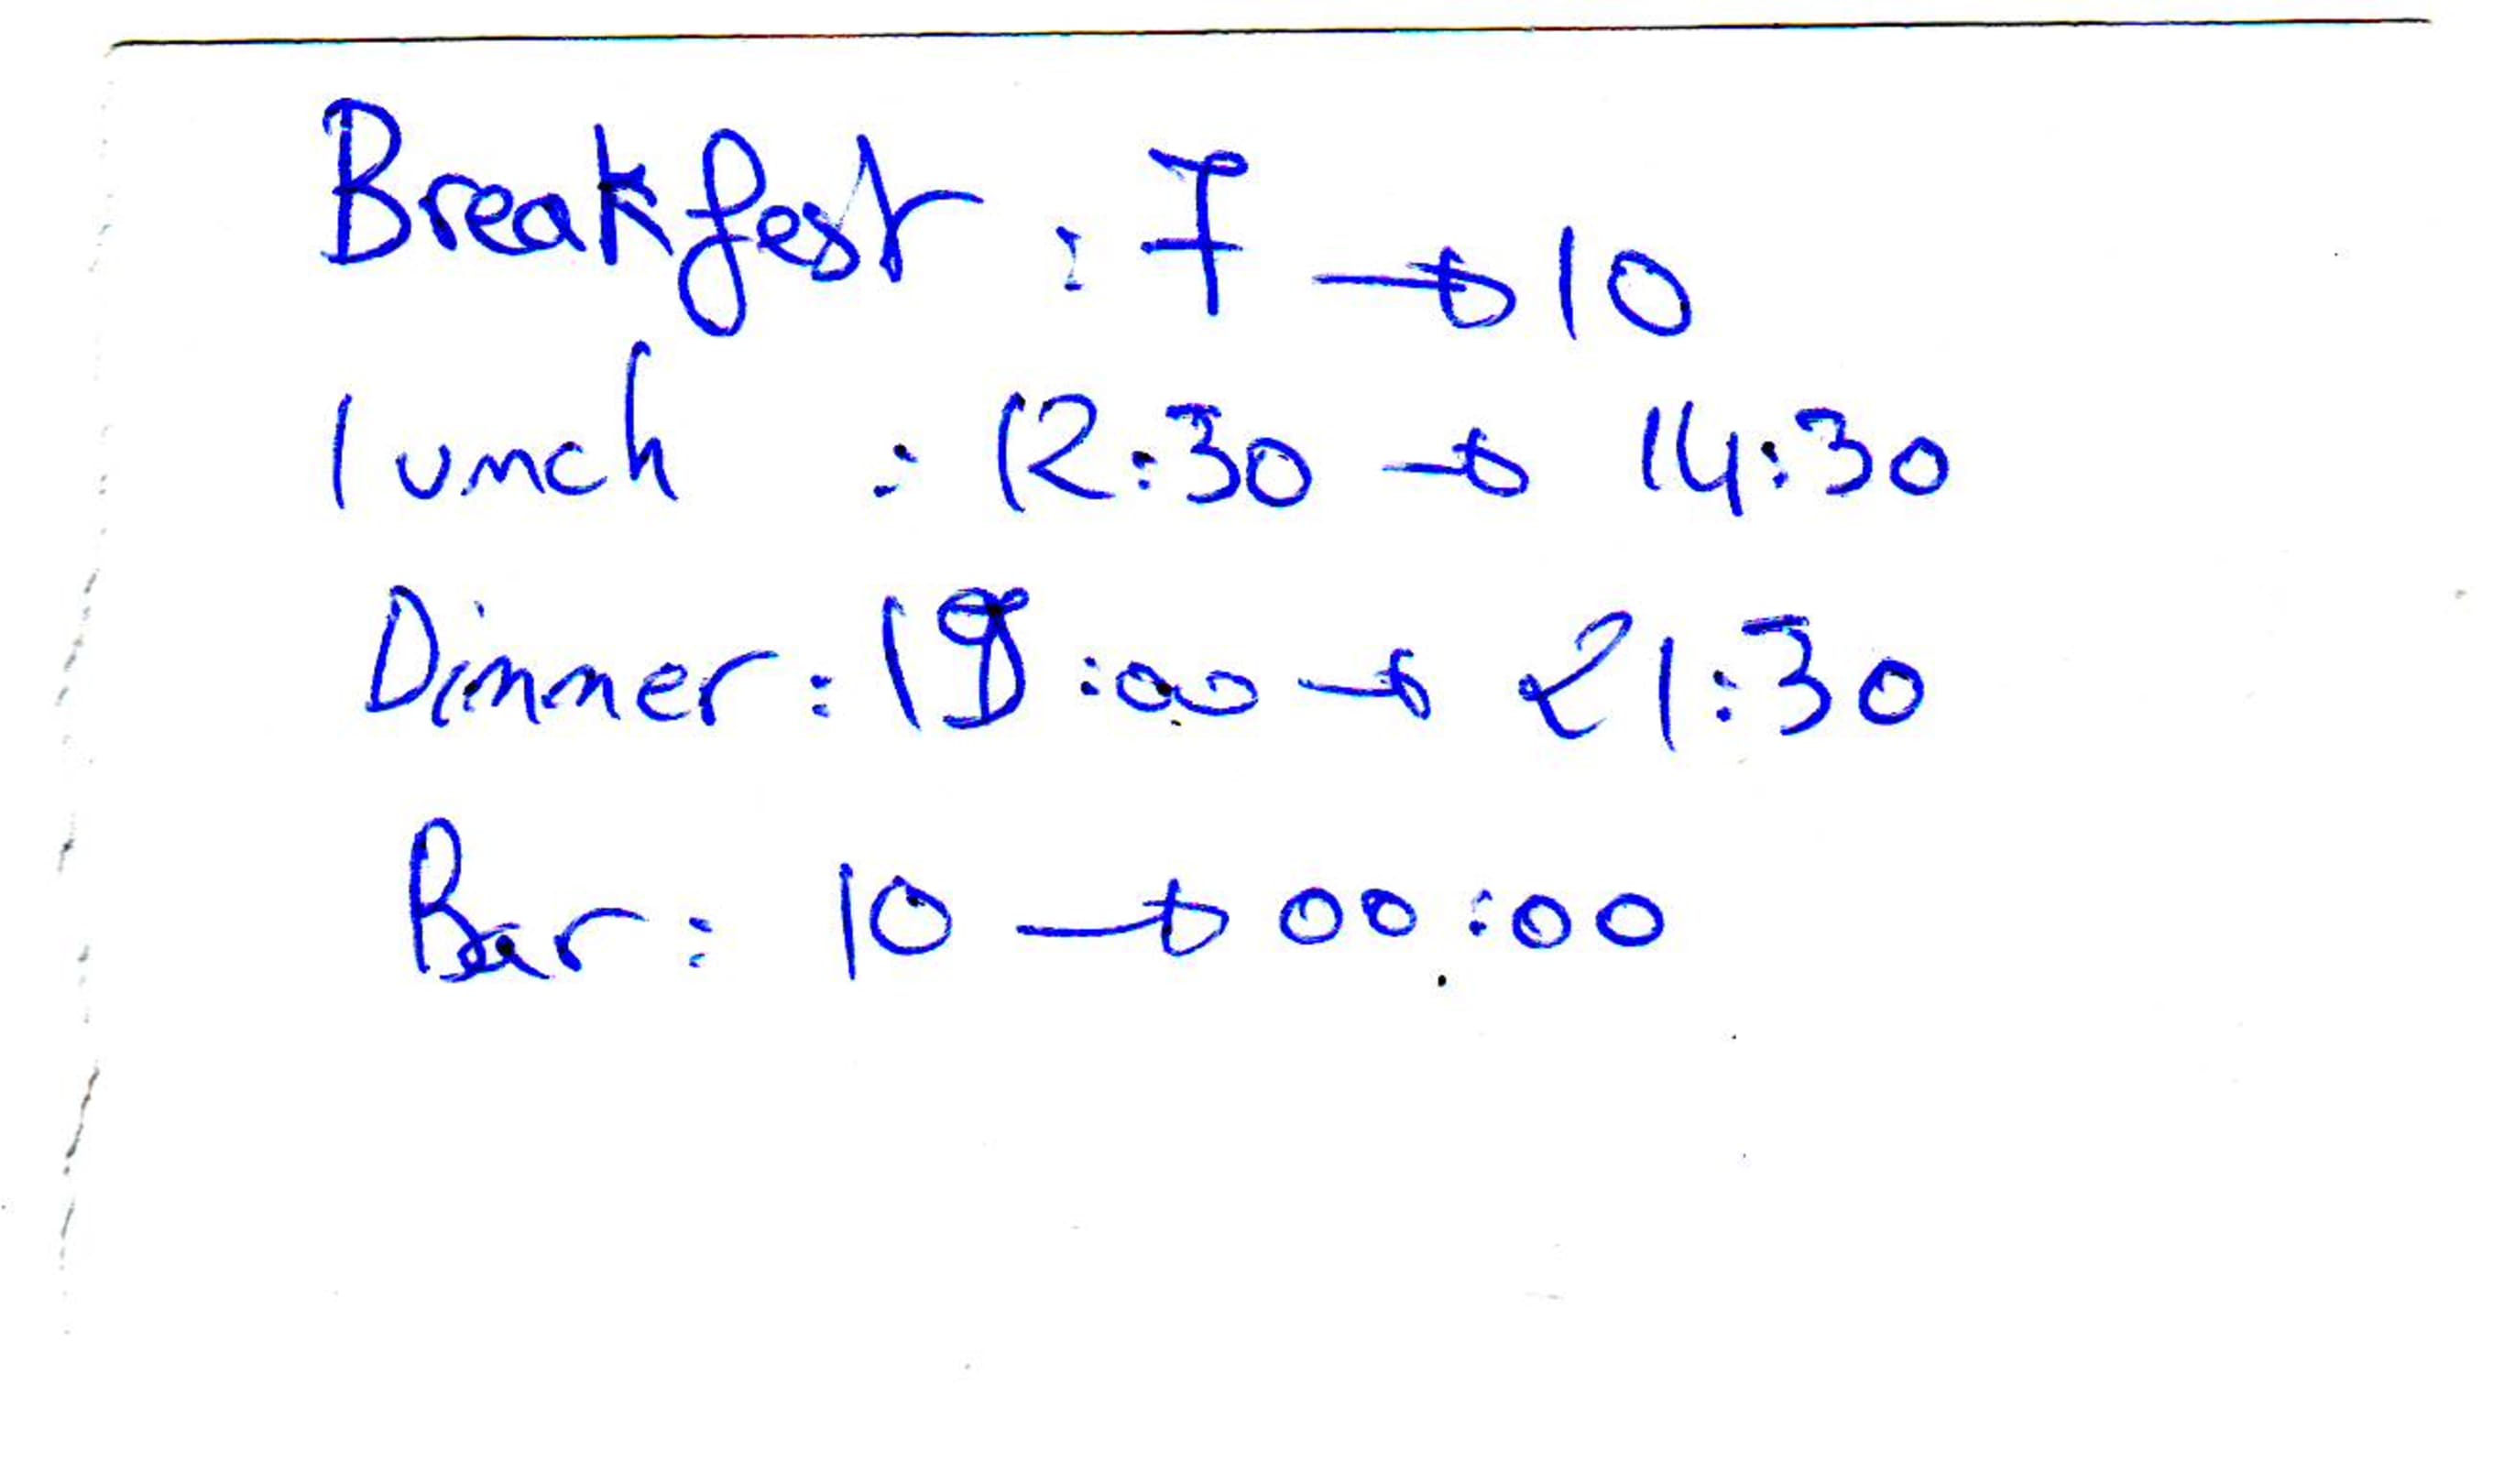 Breakfest : 7 → 10
lunch : 12:30 → 14:30
Dinner : 19:00 → 21:30
Bar : 10 → 00:00